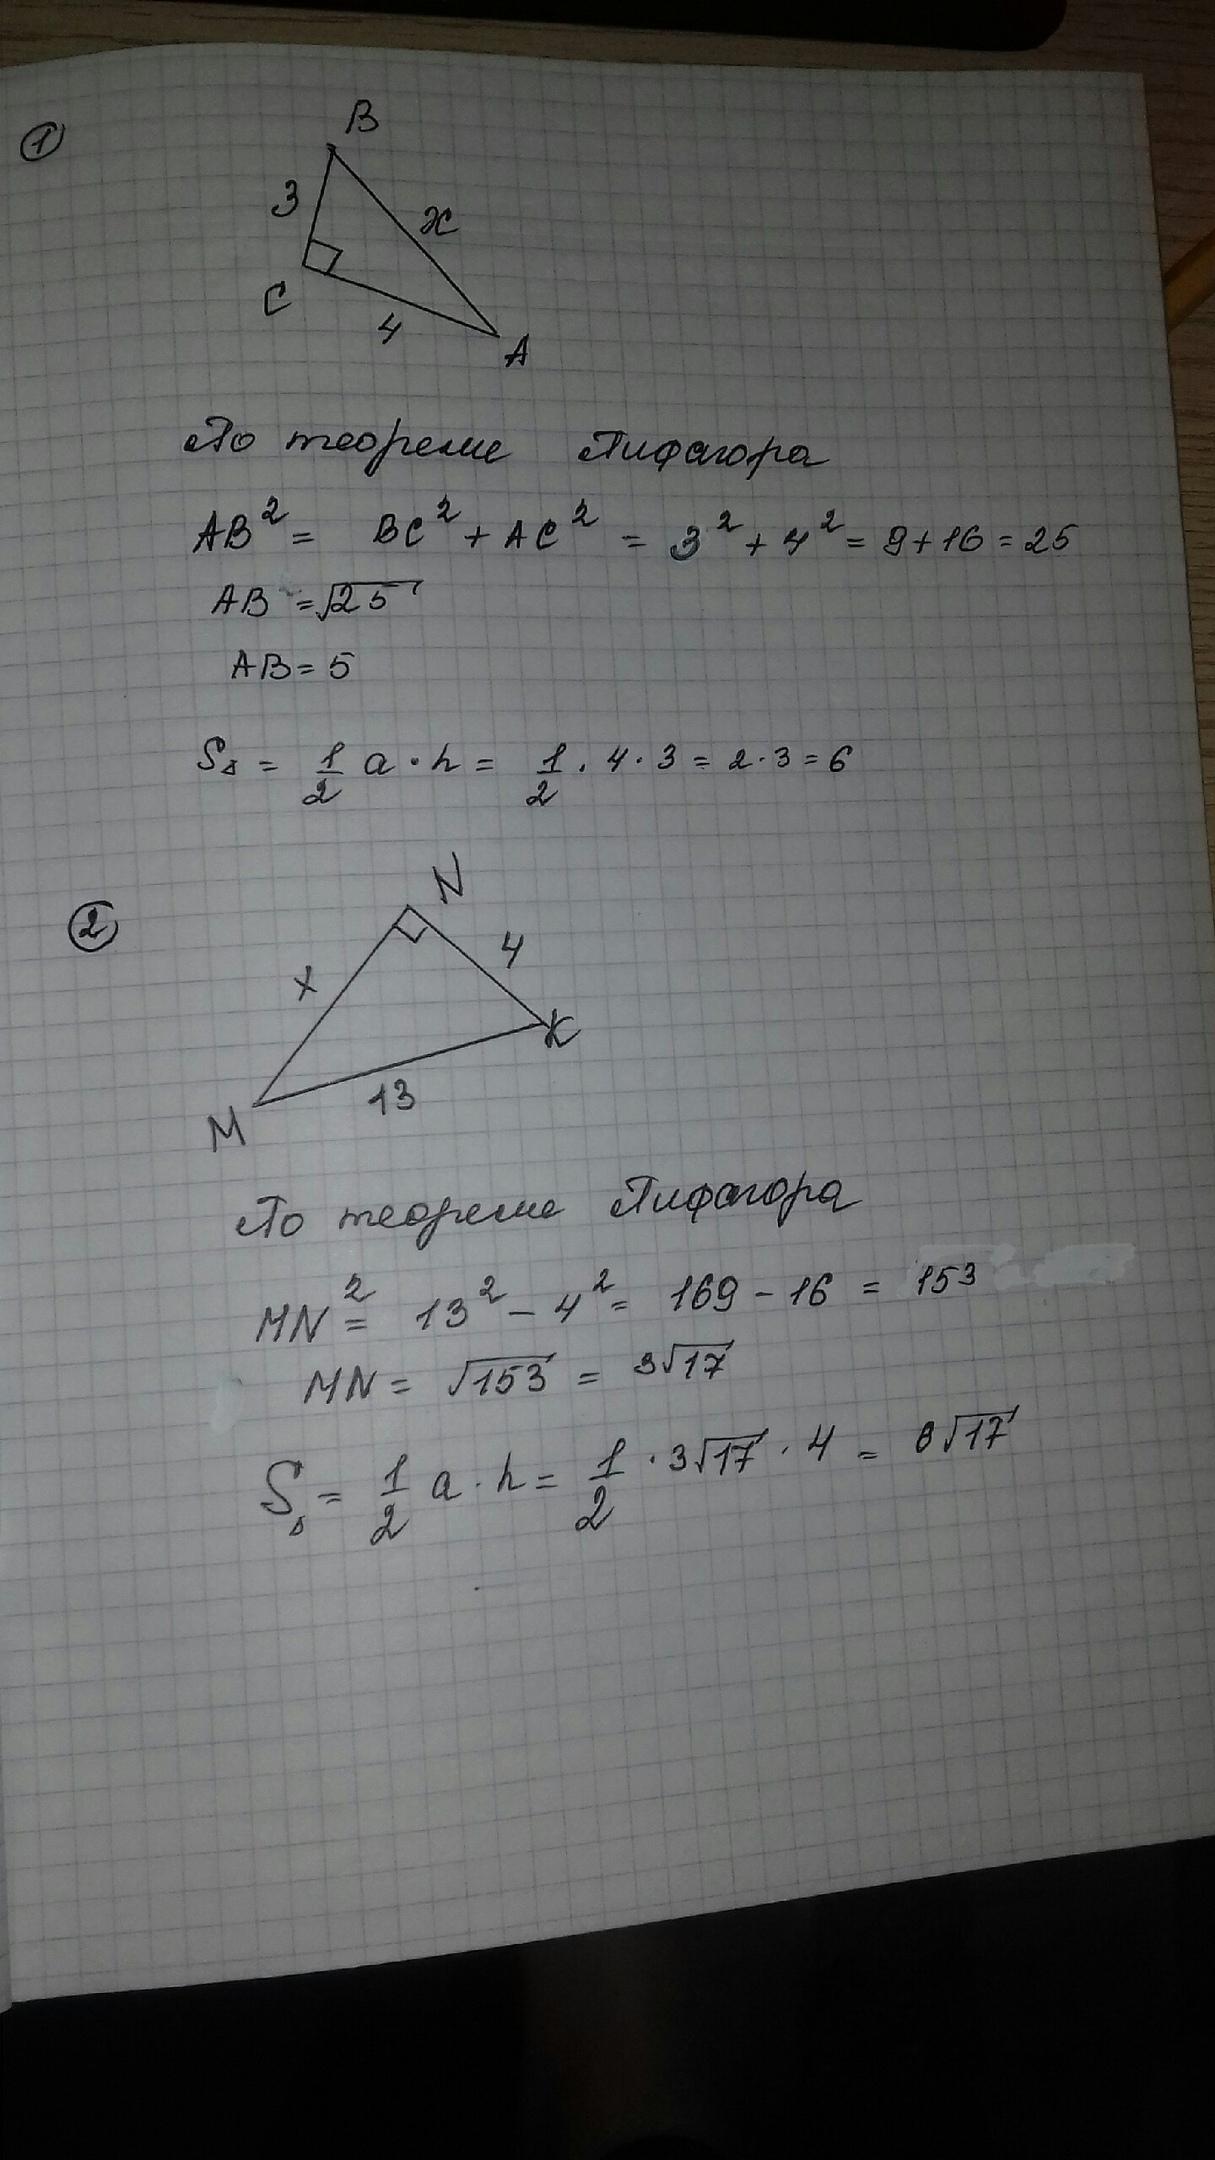 1
B
3
x
C
4
A
По теореме Пифагора
AB² = BC² + AC² = 3² + 4² = 9 + 16 = 25
AB = √25
AB = 5
S△ = 1/2 a · h = 1/2 · 4 · 3 = 2 · 3 = 6
2
N
4
x
K
13
M
По теореме Пифагора
MN² = 13² - 4² = 169 - 16 = 153
MN = √153 = 3√17
S△ = 1/2 a · h = 1/2 · 3√17 · 4 = 6√17